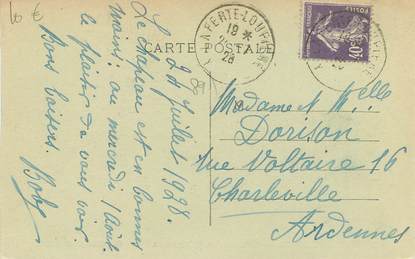 10 €
CARTE POSTALE
LA FERTÉ-LOUPIÈRE
18 *
28
POSTES
40c
8
24 Juillet 1928.
Le chapeau est en bonnes
mains. au mercredi 1 Aout.
le plaisir de vous voir.
Bons baisers. Boby
Madame & Melle
Dorison
rue Voltaire 16
Charleville
Ardennes